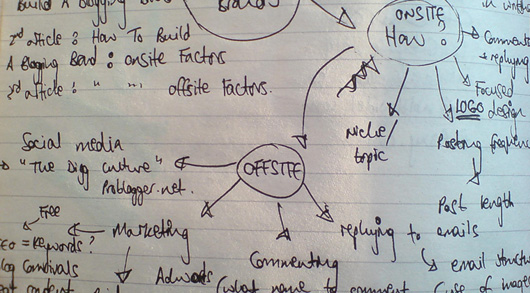 Build A Blogging
Brand
2nd article : How To Build
A Blogging Brand : onsite Factors
3rd article : " " offsite Factors.
ONSITE
How ?
Comment
replying
Focused
LOGO design
Posting frequen
Post length
email struct
niche
topic
OFFSITE
Social media
"The Digg culture"
Problogger.net.
Free
Marketing
SEO = Keywords ?
log Carnivals
Adwords
Commenting
(what name to comment
replying to emails
(use of image